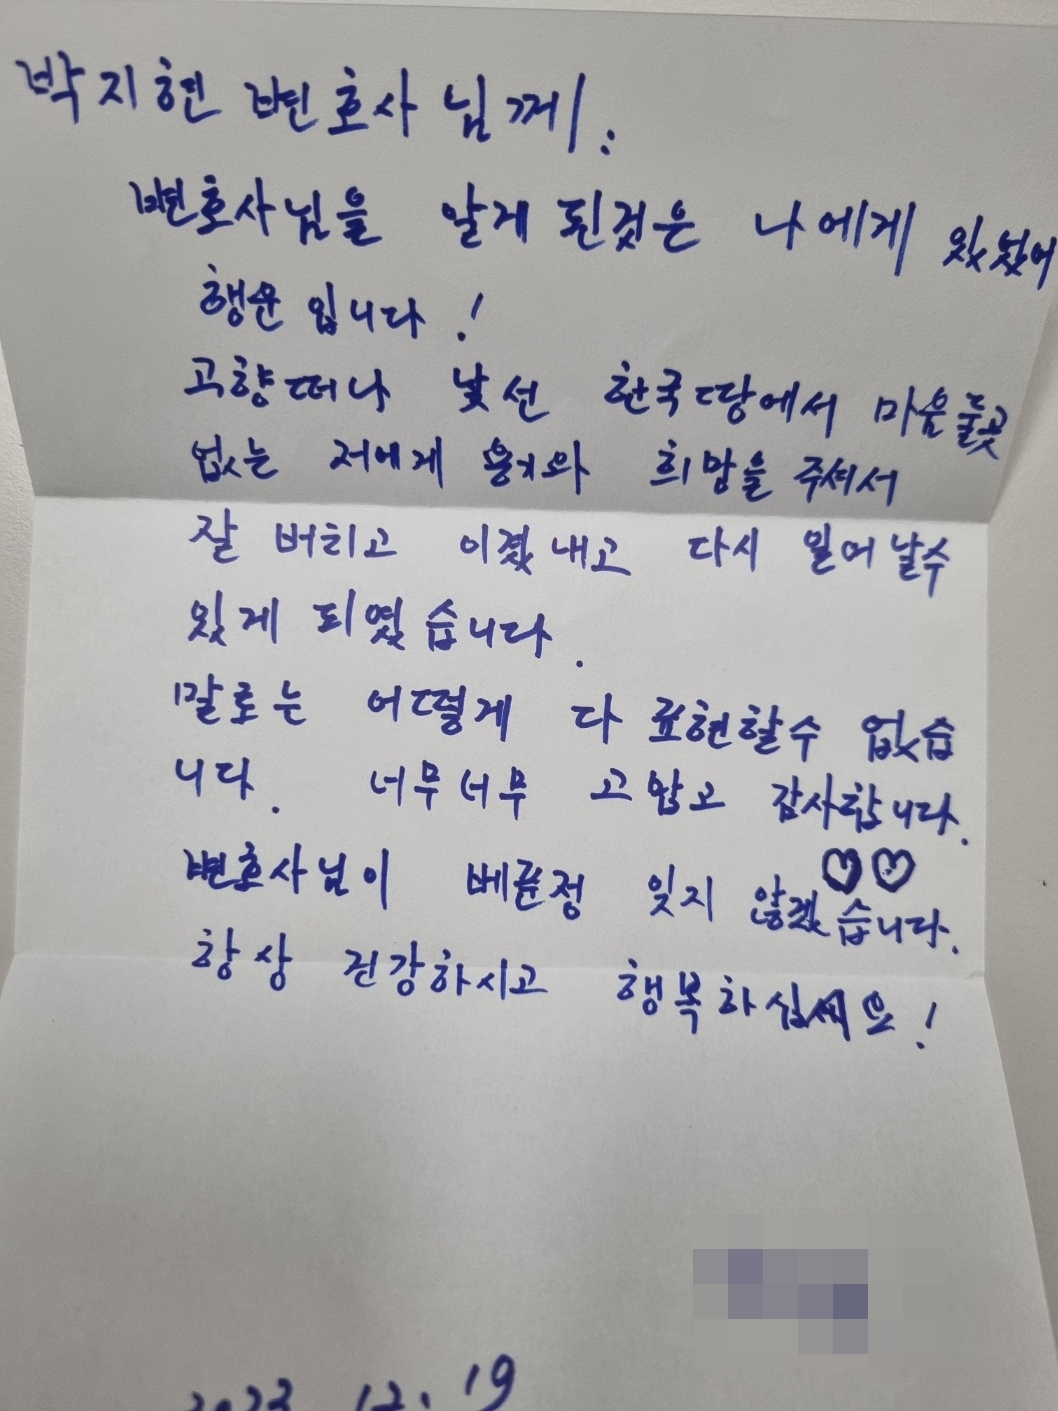 박지현 변호사님께:
변호사님을 알게 된것은 나에게 있었어
행운입니다!
고향떠나 낯선 한국땅에서 마음둘곳
없는 저에게 용기와 희망을 주셔서
잘 버티고 이겼내고 다시 일어날수
있게 되였습니다.
말로는 어떻게 다 표현할수 없습
니다. 너무너무 고맙고 감사합니다.
변호사님이 베푼정 잊지 않겠습니다.
항상 건강하시고 행복하십세요!
2023 12. 19